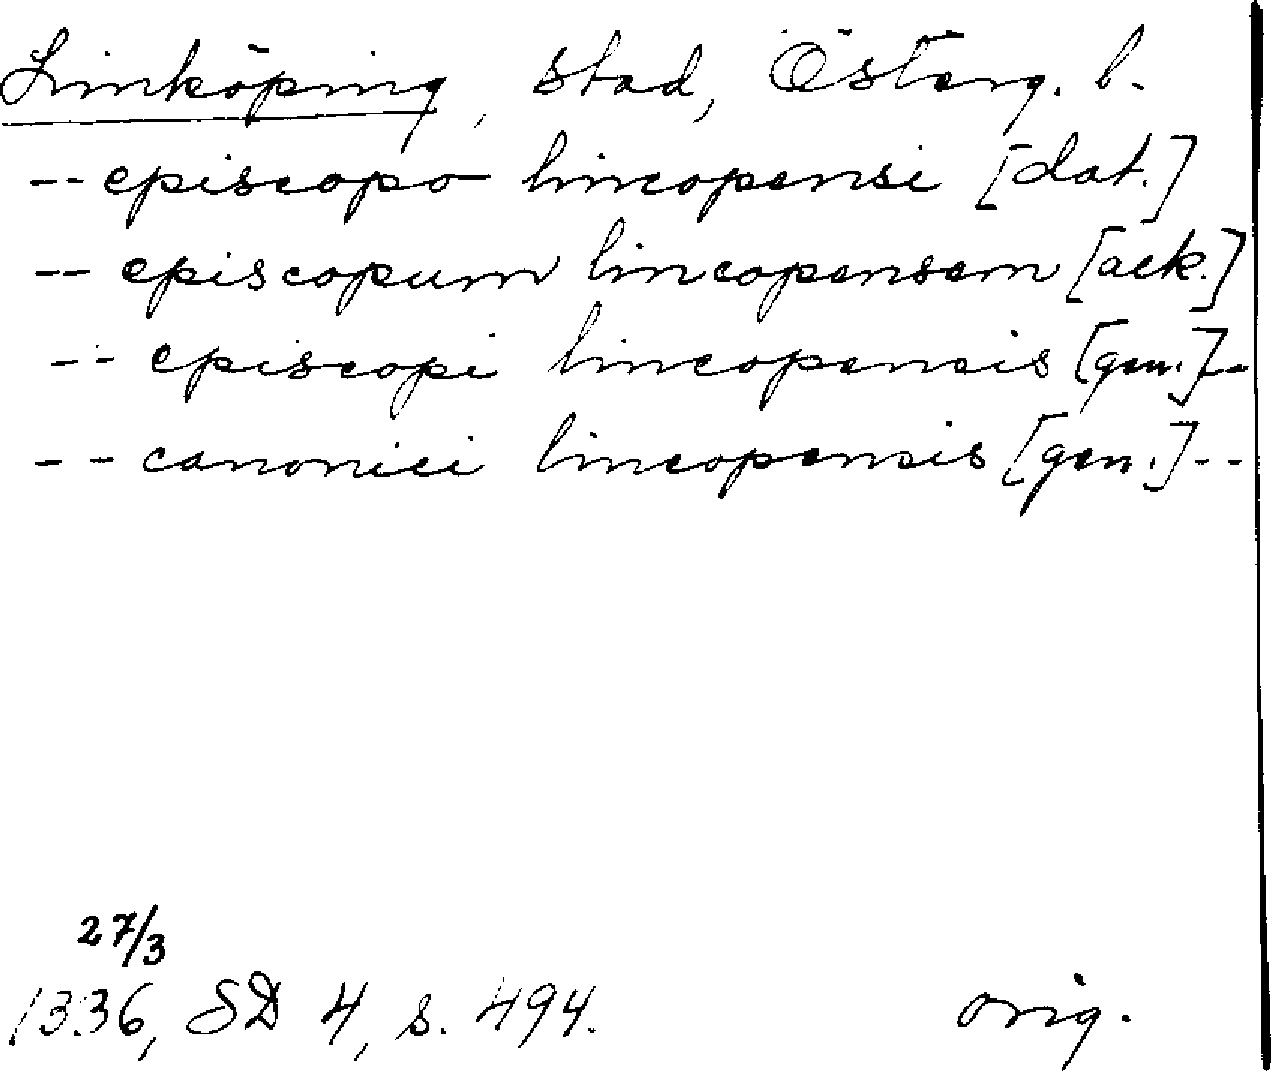 Linköping, stad, Österg. l.
-- episcopo lincopensi [dat.]
-- episcopum lincopensem [ack.]
-- episcopi lincopensis [gen.] --
-- canonici lincopensis [gen.] --
27/3
1336, SD 4, s. 494. orig.